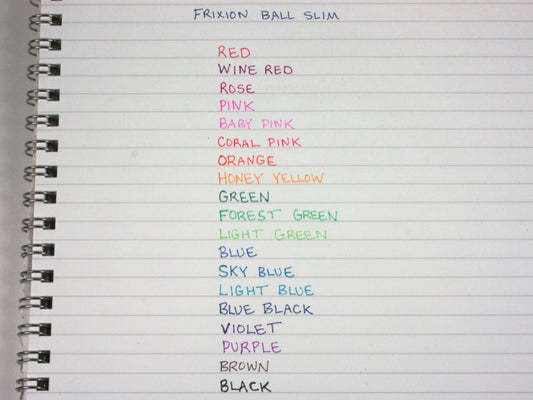 FRIXION BALL SLIM
RED
WINE RED
ROSE
PINK
BABY PINK
CORAL PINK
ORANGE
HONEY YELLOW
GREEN
FOREST GREEN
LIGHT GREEN
BLUE
SKY BLUE
LIGHT BLUE
BLUE BLACK
VIOLET
PURPLE
BROWN
BLACK